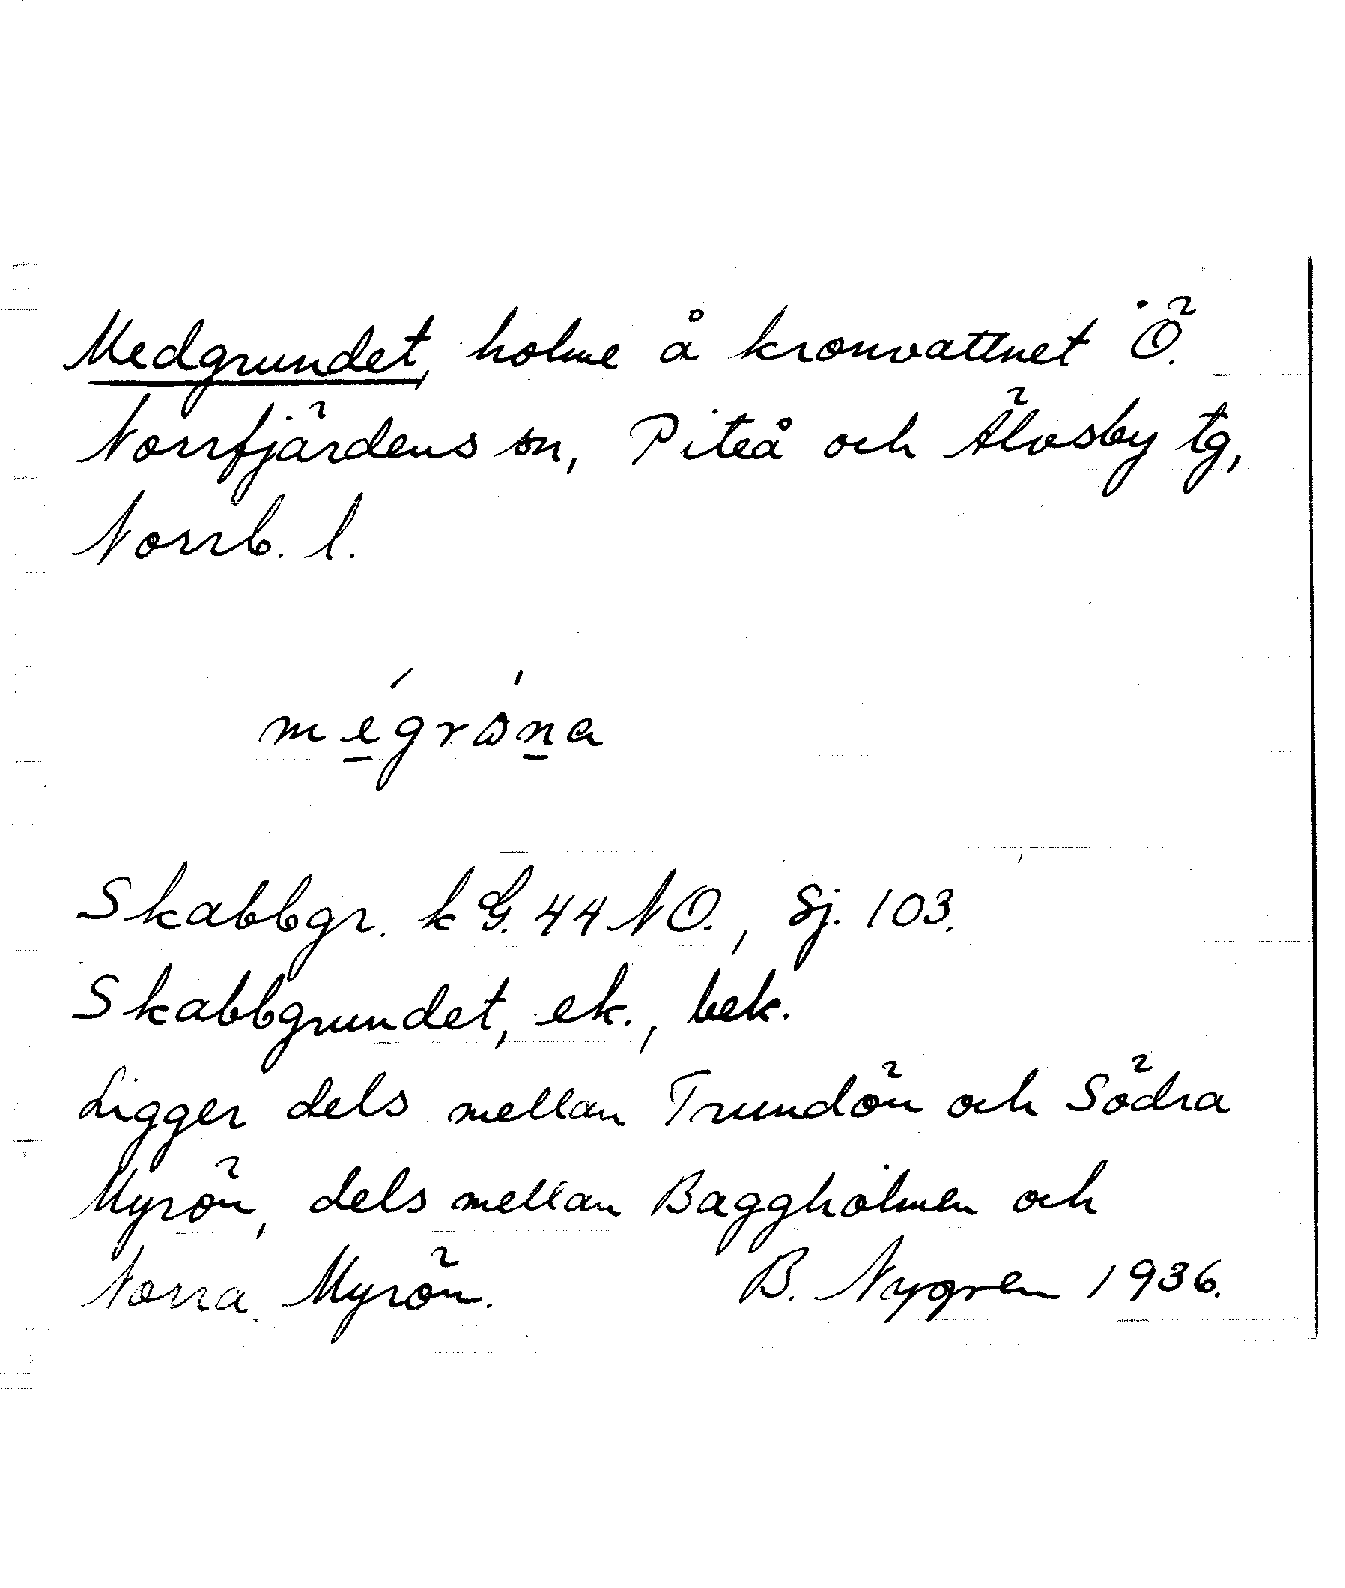 Medgrundet, holme å kronvattnet Ö.
Norrfjärdens sn, Piteå och Älvsby tg,
Norrb. l.
Skabbgr. k G. 44 NO., Sj. 103.
Skabbgrundet, ek., bek.
Ligger dels mellan Trundön och Södra
Myrön, dels mellan Baggholmen och
Norra Myrön. B. Nygren 1936.